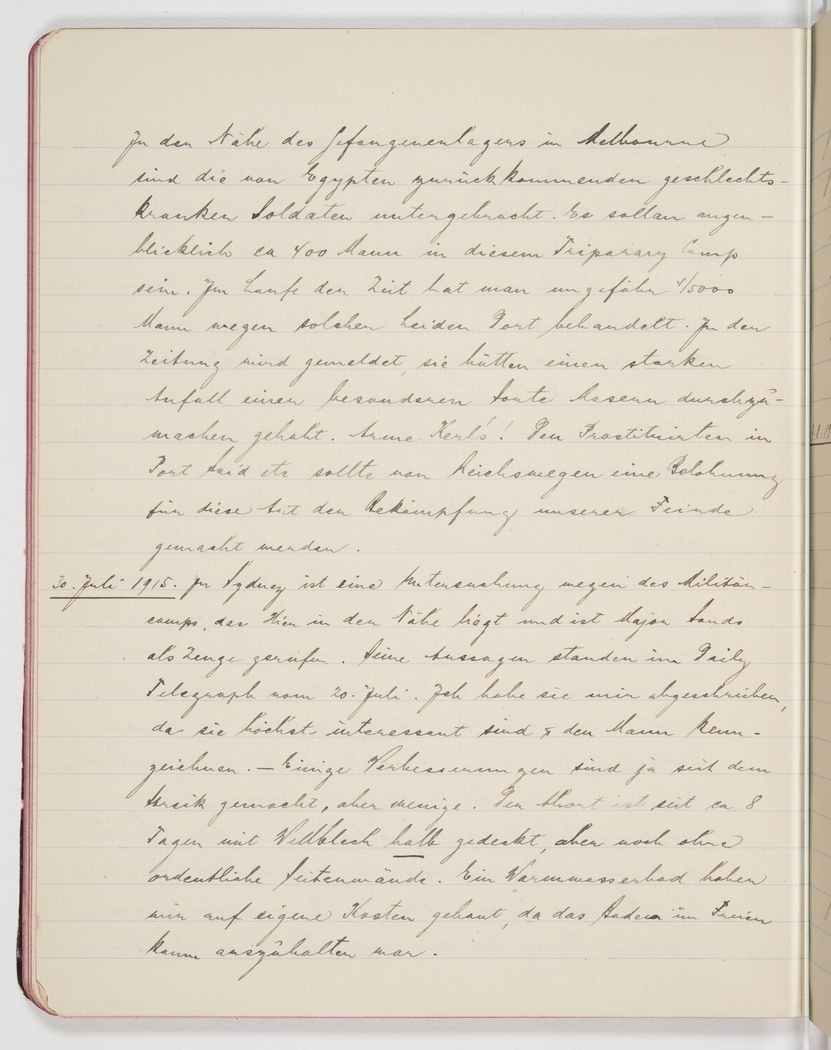 In der Nähe des Gefangenenlagers in Melbourne
sind die von Egypten zurückkommenden geschlechts-
kranken Soldaten untergebracht. Es sollen augen-
blicklich ca 400 Mann in diesem Triparary Camp
sein. Im Laufe der Zeit hat man ungefähr 4/5000
Mann wegen solcher Leiden Dort behandelt. In der
Zeitung wird gemeldet, sie hätten einen starken
Anfall einer besonderen Sorte Masern durchzu-
machen gehabt. Arme Kerls! Den Prostituirten in
Port Said etc sollte von Reichswegen eine Belohnung
für diese Art der Bekämpfung unserer Feinde
gemacht werden.
20. Juli 1915. In Sydney ist eine Untersuchung wegen des Militär-
camps, das Hier in der Nähe liegt und ist Major Sands
als Zeuge gerufen. Seine Aussagen standen im Daily
Telegraph vom 20. Juli. Ich habe sie mir abgeschrieben,
da sie höchst interessant sind & den Mann kenn-
zeichnen. — Einige Verbesserungen sind ja seit dem
Streik gemacht, aber wenige. Der Abort ist seit ca 8
Tagen mit Wellblech halb gedeckt, aber noch ohne
ordentliche Seitenwände. Ein Warmwasserbad haben
wir auf eigene Kosten gebaut, da das Baden im Freien
kaum auszuhalten war.